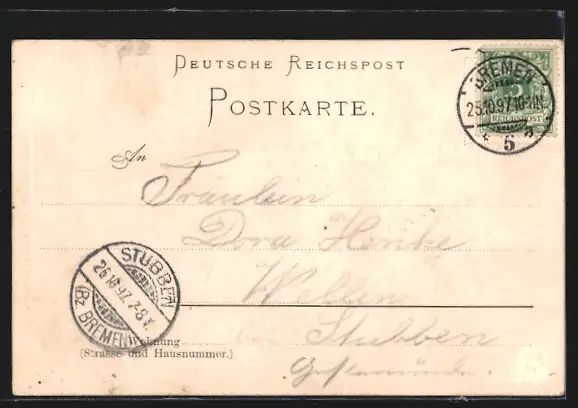 DEUTSCHE REICHSPOST
POSTKARTE.
BREMEN
25.10.97.10-11N.
* 5 a
5
REICHSPOST
An
Fräulein
Dora Henke
Wellen
STUBBEN
26.10.97. 7-8V.
(BZ. BREMEN)
Wohnung
Stubben
(Strasse und Hausnummer.)